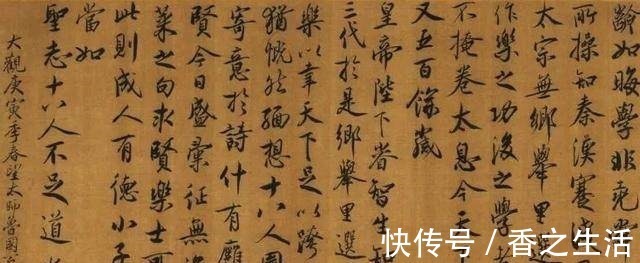 齡如晦學非堯
所操知秦漢蹇
太宗無鄉舉里
作樂之功後之學
不掩卷太息今
又五百餘歲
皇帝陛下睿智生
三代於是鄉舉里選
樂以韋天下足以跨
猶慨然緬想十八人圖
寄意於詩什有廱
賢今日盛彙征無
萊之句求賢樂士
此則成人有德小子
當如
聖志十八人不足道
大觀庚寅季春望太師魯國公
快传号/香之生活